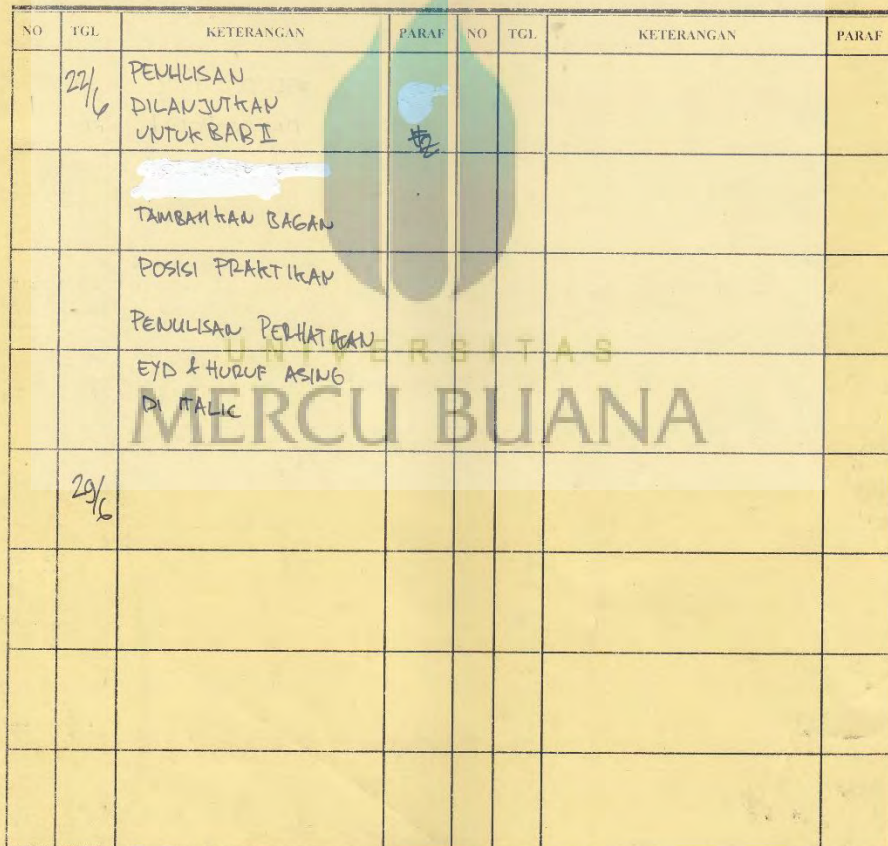 NO TGL KETERANGAN PARAF NO TGL KETERANGAN PARAF
22/6 PENULISAN
DILANJUTKAN
UNTUK BAB II
TAMBAHKAN BAGAN
POSISI PRAKTIKAN
PENULISAN PERHATIKAN
UNIVERSITAS
EYD & HURUF ASING
DI ITALIC
MERCU BUANA
29/6